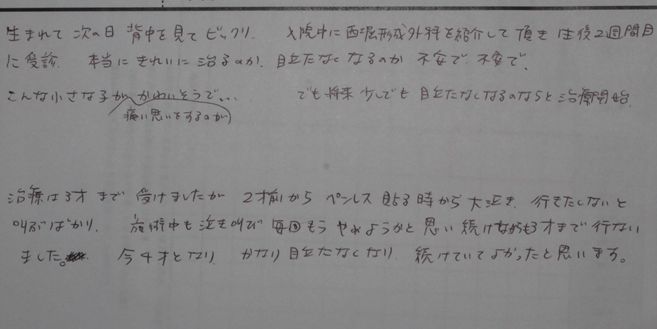 生まれて 次の日 背中を見て ビックリ。 入院中に 西堀形成外科を紹介して 頂き 生後2週間目
に受診。 本当に きれいに 治るのか、目立たなく なるのか 不安で 不安で。
こんな小さな子が かわいそうで… でも 将来 少しでも 目立たなくなるのならと 治療開始。
痛い思いをするのが
治療は3才まで 受けましたが 2才前から ペンレス 貼る時から 大泣き、行きたくないと
叫ぶばかり。 施術中も 泣き叫び 毎回 もう やめようかと 思い 続けながらも 3才まで 行ない
ました。 今 4才となり かなり 目立たなくなり 続けていて よかったと 思います。